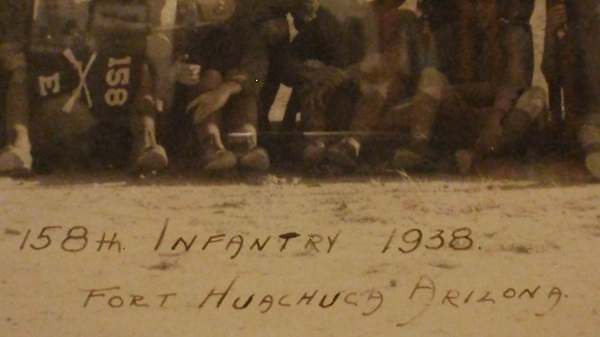 E 158
158th INFANTRY 1938.
FORT HUACHUCA ARIZONA.